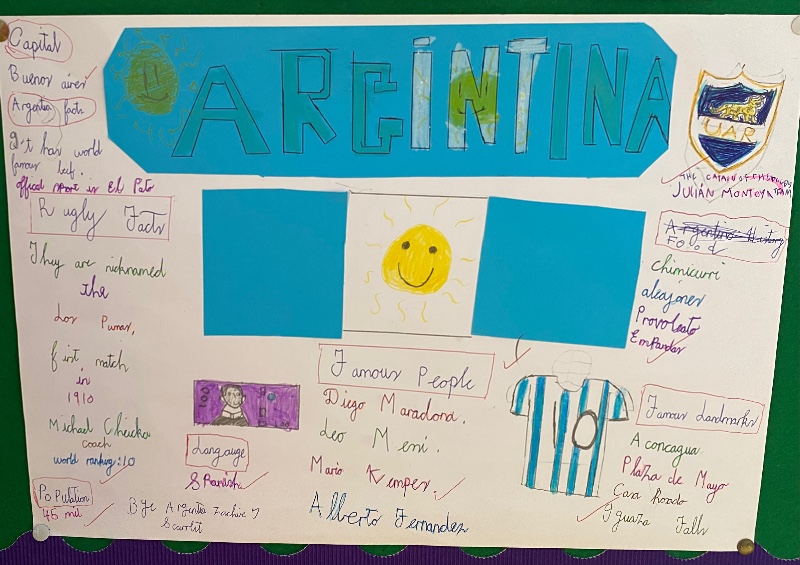 ARGINTINA
Capital
Buenos aires
Argentia facts
It has world
famous beef.
offical sport is El Pato
Rugby Facts
They are nicknamed
the
Los Pumas,
first match
in
1910
Michael Cheicka
coach
world ranking:10
Population
45 mil
UAR
JULIÁN MONTOYA
Argentina History
Food
Chimicuri
alcajores
Provoleato
Empandas
Famous People
Diego Maradona.
Leo Messi.
Mario Kempes.
Alberto Fernandez
100
Langauge
Spanish
10
Famous Landmarks
Aconcagua
Plaza de Mayo
Casa Rosado
Iguaza Falls
Bye Argentia
Scarlet